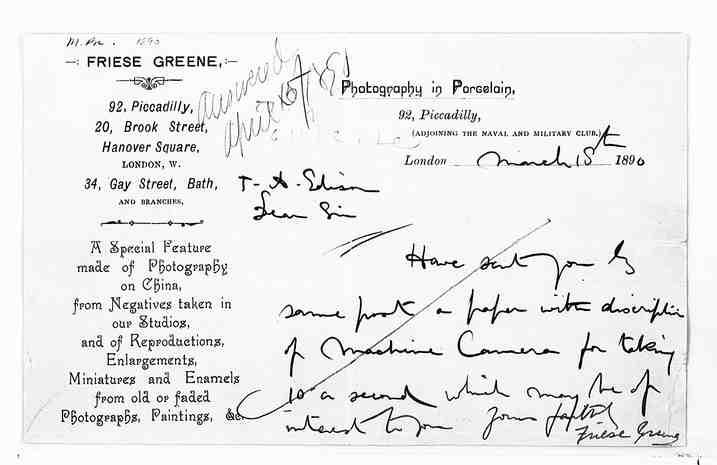 M. Pic. 1890
FRIESE GREENE,
92, Piccadilly,
20, Brook Street,
Hanover Square,
LONDON, W.
34, Gay Street, Bath,
AND BRANCHES,
A Special Feature
made of Photography
on China,
from Negatives taken in
our Studios,
and of Reproductions,
Enlargements,
Miniatures and Enamels
from old or faded
Photographs, Paintings, &c.
answered
April 15/90
Photography in Porcelain,
92, Piccadilly,
(ADJOINING THE NAVAL AND MILITARY CLUB,)
London March 18th 1890
T. A. Edison
Dear Sir
Have sent you by
same post a paper with discription
of Machine Camera for taking
10 a second which may be of
interest to you Yours faithfully
Friese Greene